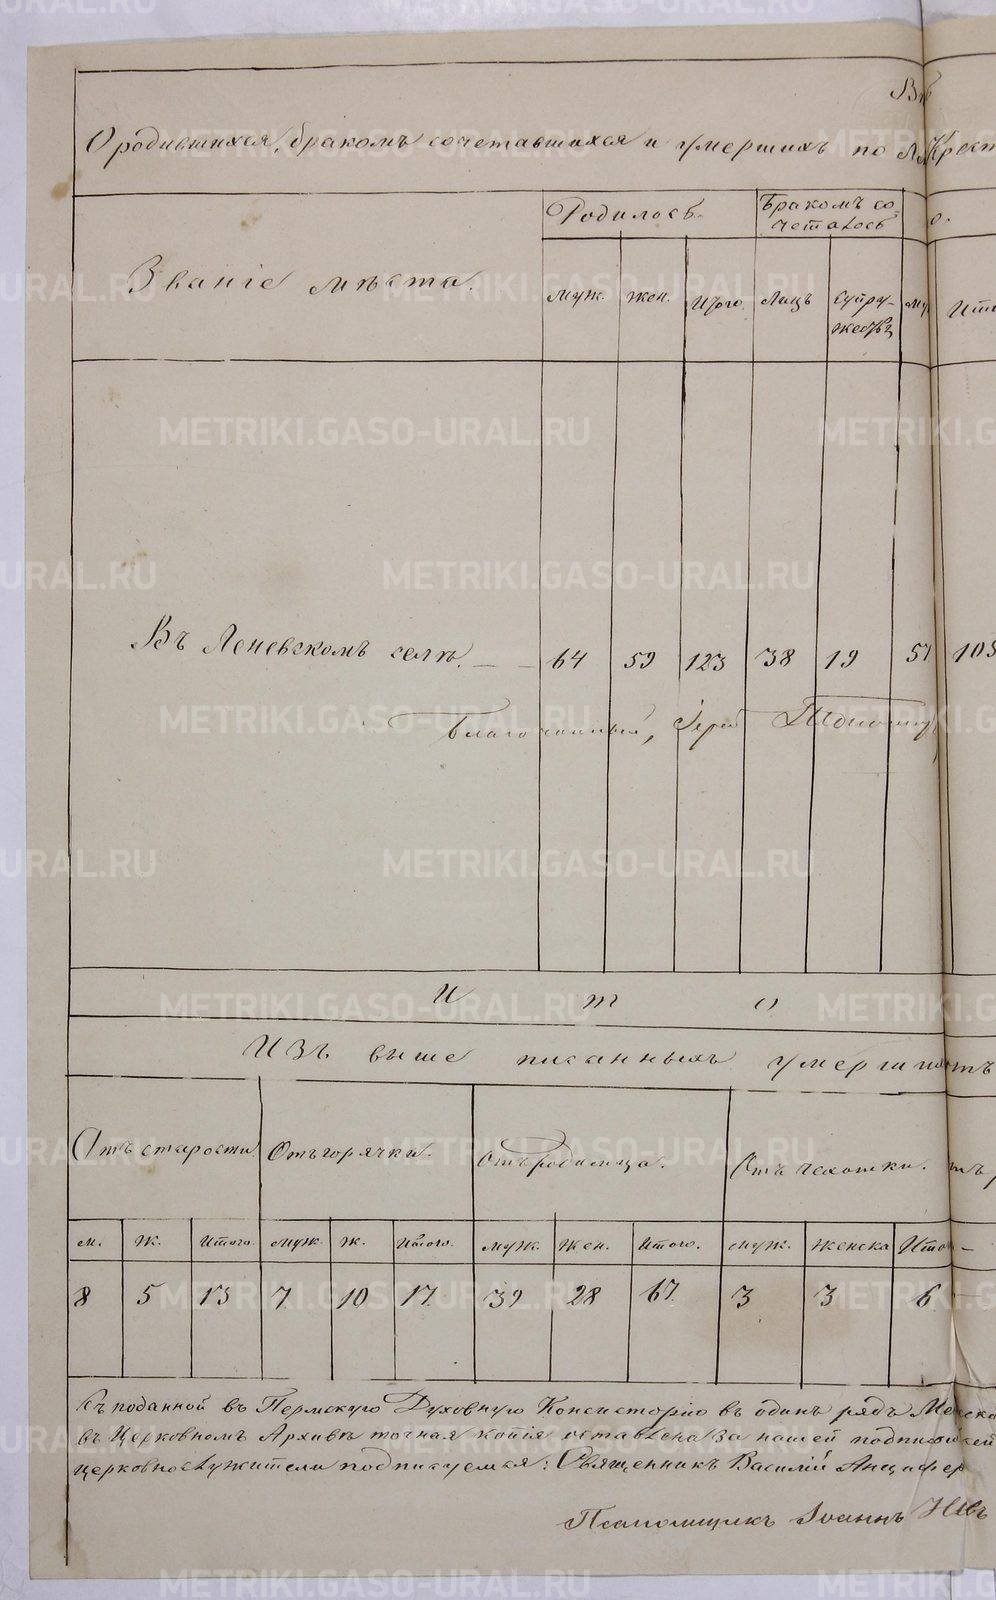 Вѣ
О родившихся, бракомъ сочетавшихся и умершихъ по
Званіе мѣста.
Родилось.
Бракомъ со-
четалось
о.
муж. жен. Итого. Лицъ супру-
жествъ му Ито
Въ Леневскомъ селѣ. — — 64 59 123 38 19 57 105
Благочинный, Іерей
И т о
Изъ выше писанныхъ умершихъ
Отъ старости. Отъ горячки. Отъ родимца. Отъ чахотки. тъ
м. ж. Итого. муж. ж. Итого. муж. жен. Итого. муж. женска Ито
8 5 13 7 10 17 39 28 67 3 3 6
Съ поданной въ Пермскую Духовную Консисторію въ одинъ рядъ
въ Церковномъ Архивѣ точная копія оставлена за нашей подписью
церковнослужители подписуемся: Священникъ Василій Анцифер
Псаломщикъ Іоаннъ
METRIKI.GASO-URAL.RU